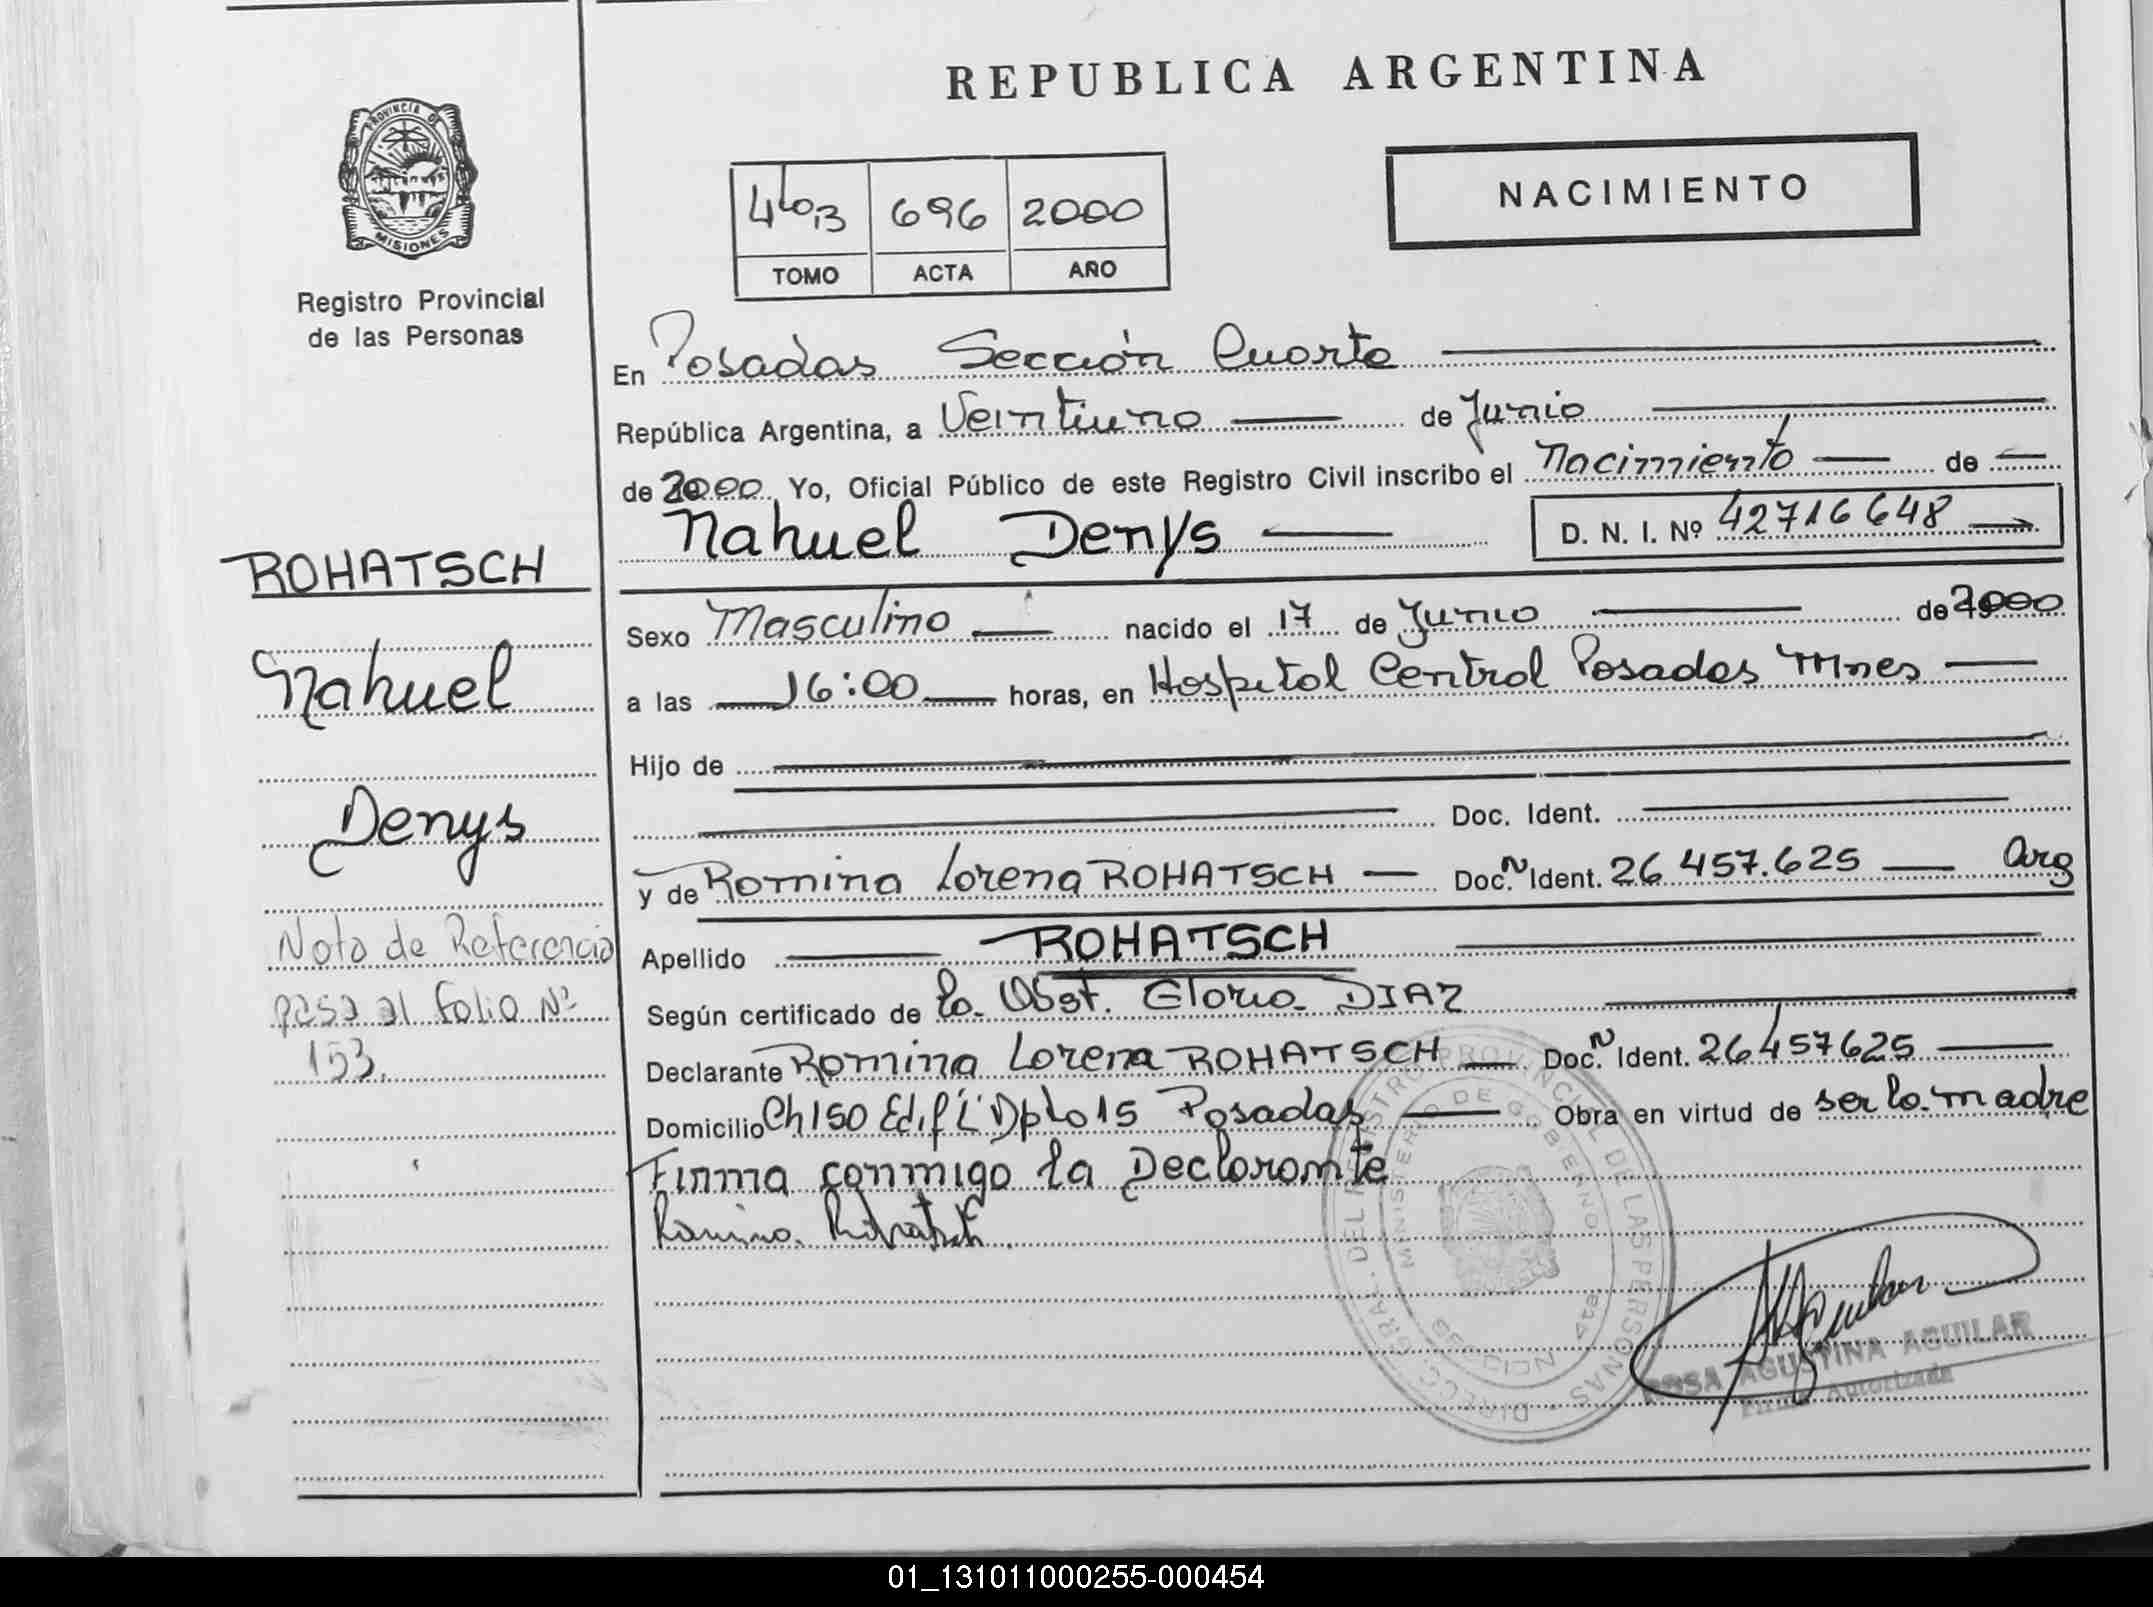 REPUBLICA ARGENTINA
NACIMIENTO
PROVINCIA DE
MISIONES
Registro Provincial
de las Personas
696 2000
TOMO ACTA AÑO
En Posadas Sección Cuarta
República Argentina, a Veintiuno de Junio
de 2000 Yo, Oficial Público de este Registro Civil inscribo el Nacimiento de
Nahuel Denys D. N. I. Nº 42716648
Sexo Masculino nacido el 17 de Junio de 2000
a las 16:00 horas, en Hospital Central Posadas Mnes
Hijo de
Doc. Ident.
y de Romina Lorena ROHATSCH Doc. N Ident. 26 457.625 Arg
Apellido ROHATSCH
Según certificado de la Obst. Gloria DIAZ
Declarante Romina Lorena ROHATSCH Doc. N Ident. 26457625
Domicilio Ch150 Edif "L" Dpto 15 Posadas Obra en virtud de ser la madre
Firma conmigo la Declarante
Romina Rohatsch
ROHATSCH
Nahuel
Denys
Nota de Referencia
pasa al folio Nº
153.
DIRECC. GRAL. DEL REGISTRO PROVINCIAL DE LAS PERSONAS
MINISTERIO DE GOBIERNO
ROSA AGUSTINA AGUILAR
Firma Autorizada
01_131011000255-000454